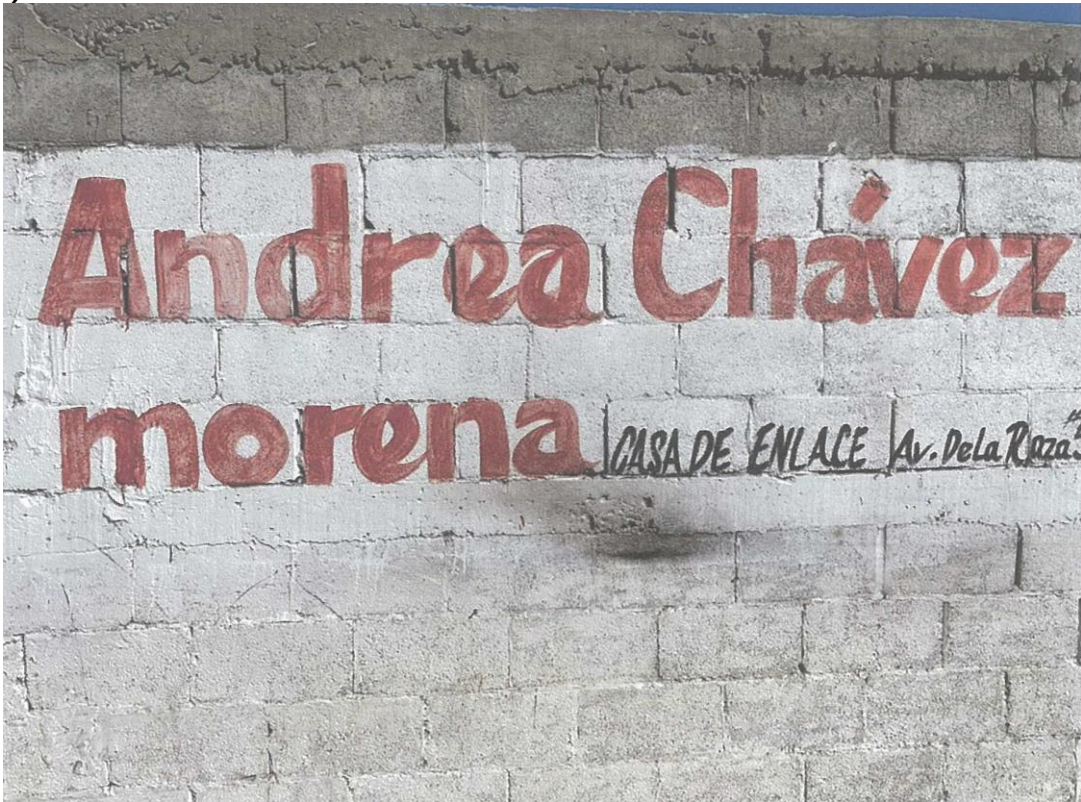 Andrea Chávez
morena CASA DE ENLACE Av. De La Raza